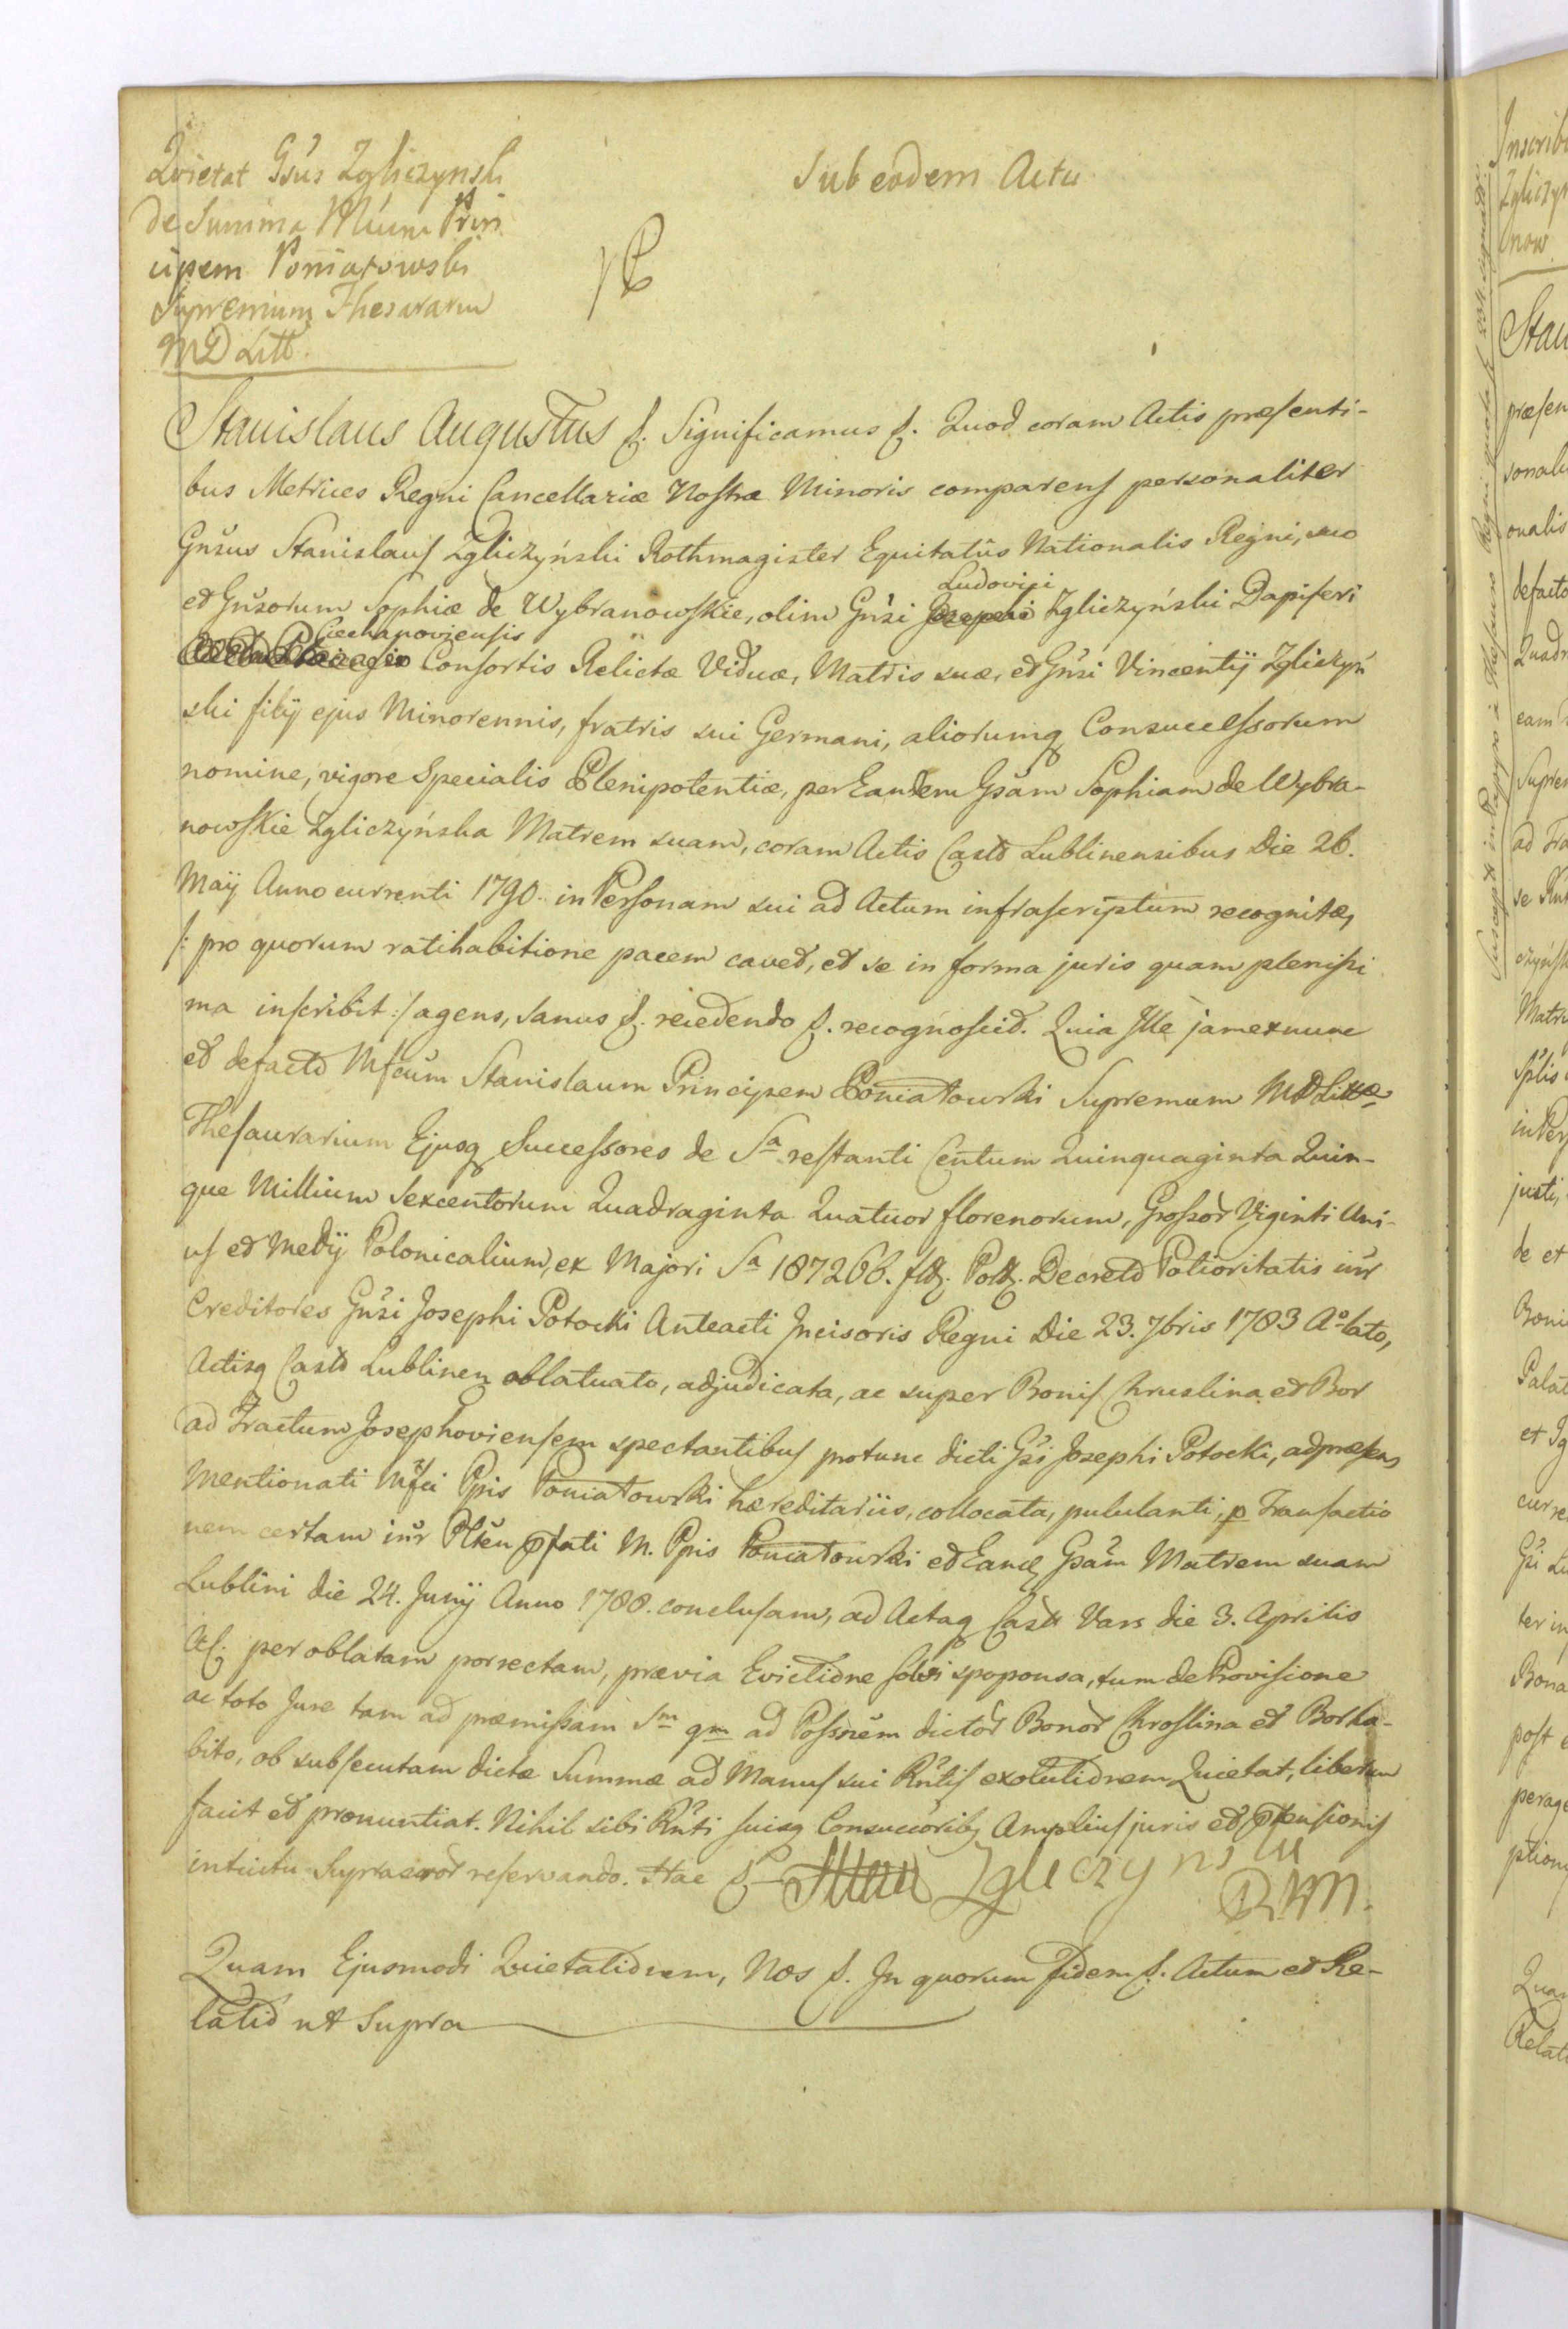 Quietat Gsus Zgliczynski
de Summa Mcum Prin
cipem Poniatowski
Supremum Thesavrariu
MD Litt.
Sub eodem Actu
Stanislaus Augustus f. Significamus f. Quod coram Actis præsenti-
bus Metrices Regni Cancellariæ Nostræ Minoris comparens personaliter
Gnsus Stanislaus Zgliczyński Rothmagister Equitatûs Nationalis Regni, suo
et Gnsorum Sophiæ de Wybranowskie, olim Gnsi Ludovici Zgliczyński Dapiferi
Ciechanoviensis Consortis Relictæ Viduæ, Matris suæ, et Gnsi Vincentij Zgliczyń
ski filij ejus Minorennis, fratris sui Germani, aliorumq Consuccessorum
nomine, vigore Specialis Plenipotentiæ, per Eandem Gsam Sophiam de Wybra-
nowskie Zgliczyńska Matrem suam, coram Actis Castr Lublinensibus Die 26.
Maij Anno currenti 1790. in Personam sui ad Actum infrascriptum recognitæ,
/: pro quorum ratihabitione pacem cavet, et se in forma juris quam plenissi
ma inscribit :/ agens, sanus f. recedendo f. recognoscit. Quia Ille jam ex nunc
et de facto Mfcum Stanislaum Principem Poniatowski Supremum MD Litt
Thesaurarium Ejusq Successores de Sa restanti Centum Quinquaginta Quin-
que Millium Sexcentorum Quadraginta Quatuor florenorum, Grossor Viginti Uni-
us et Medij Polonicalium, ex Majori Sa 187266. flp. Poll. Decreto Potioritatis inr
Creditores Gnsi Josephi Potocki Anteacti Incisoris Regni Die 23. 7bris 1783 Ao lato,
Actisq Castr Lublinen oblatuato, adjudicata, ac super Bonis Chruslina et Bor
ad Tractum Josephoviensem spectantibus protunc dicti Gsi Josephi Potocki, ad præsens
Mentionati Mfci Ppis Poniatowski hæreditariis, collocata, pululanti, p Transactio
nem certam inr Plten pfati M. Ppis Poniatowski et Eand Gsam Matrem suam
Lublini die 24. Junij Anno 1788. conclusam, ad Actaq Castr Vars die 3. Aprilis
AC. per oblatam porrectam, prævia Evictione solvi spoponsa, tum de Provisione
ac toto Jure tam ad præmissam Sm qm ad Possnem dictor Bonor Chroslina et Bor ha-
bito, ob subsecutam dictæ Summæ ad Manus sui Rntis exolutionem Quietat, liberum
facit et pronuntiat. Nihil sibi Rnti suisq Consuccoribq Amplius juris et ptensionis
intuitu Supra reservando. Hac f. Zgliczynski
R.W.M.
Quam Ejusmodi Quietationem, Nos f. In quorum Fidem f. Actum et Re-
latio ut Supra